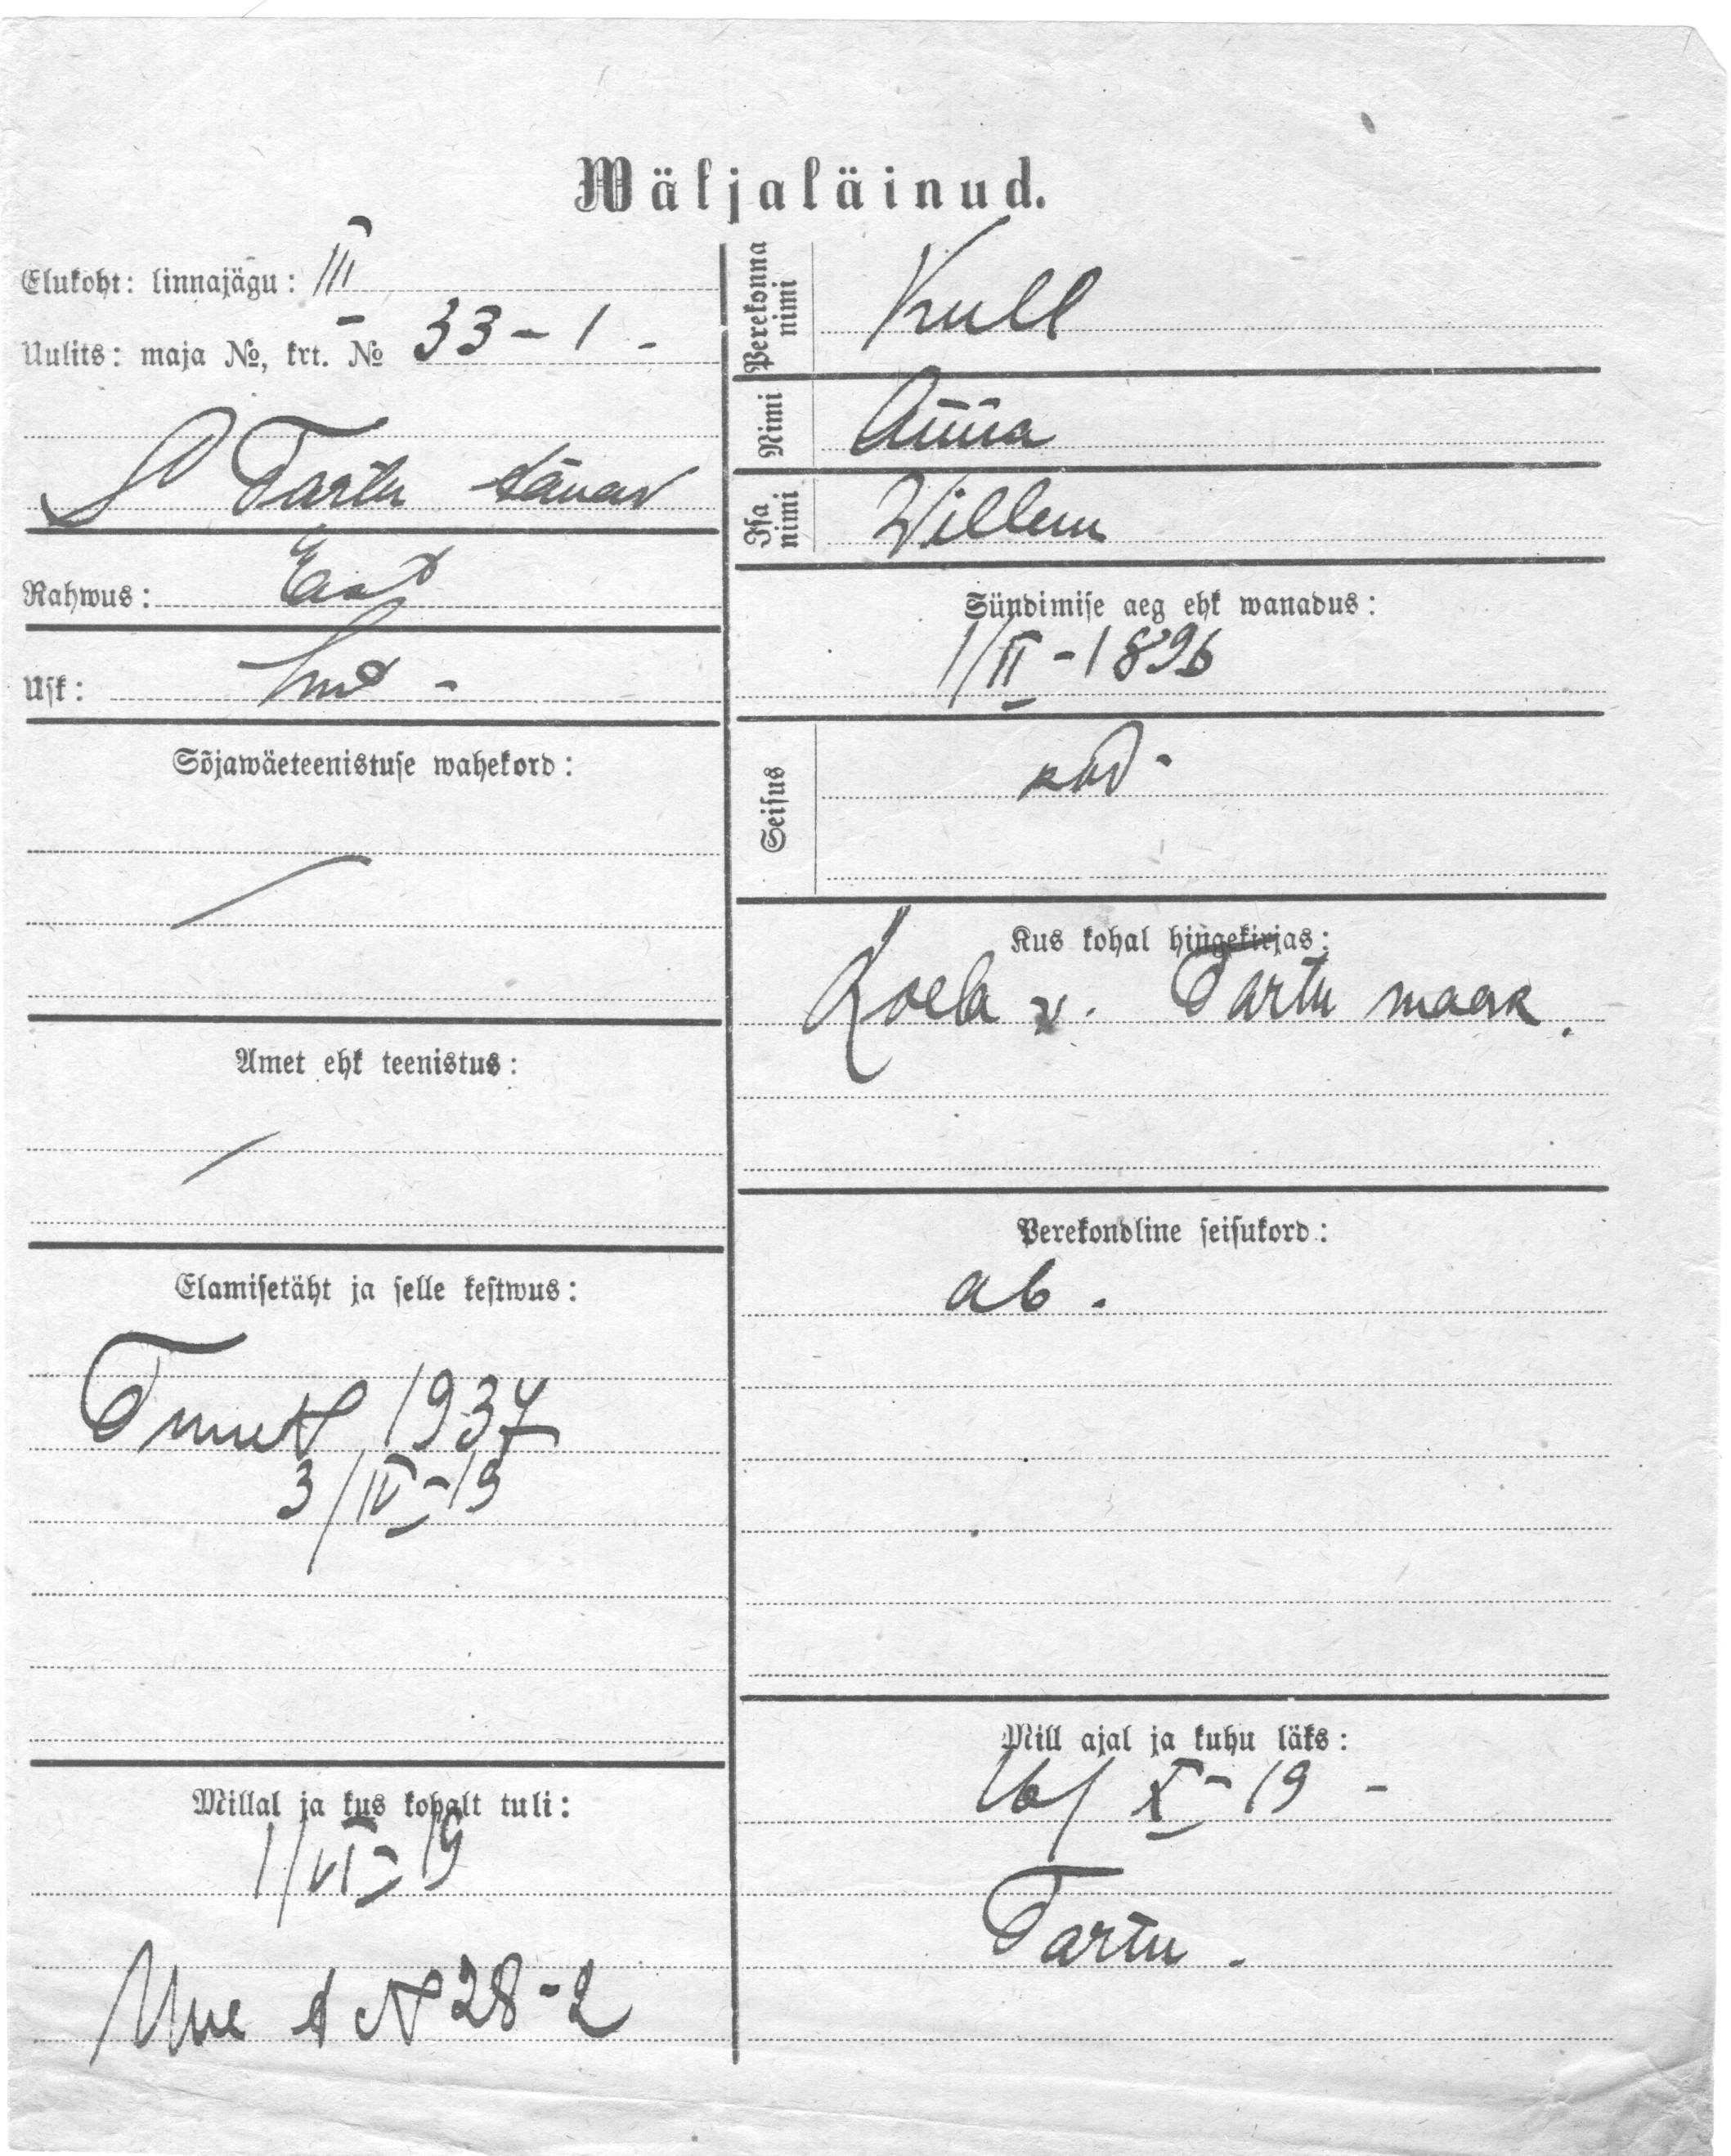 Wäljaläinud.
Elukoht: linnajägu: III
Uulits: maja №, krt. № 33 - 1 -
S Tartu tänav
Rahwus: Eest
Usk: Lut -
Sõjawäeteenistuse wahekord:
Amet ehk teenistus:
Elamisetäht ja selle kestwus:
Tunnist 1937
3/IV-19
Millal ja kus kohalt tuli:
1/VI-19
Uue t № 28-2
Perekonna nimi Kull
Nimi Anna
Isa nimi Willem
Sündimise aeg ehk wanadus:
1/II-1896
Seisus
Kus kohal hingekirjas:
v. Tartu maak.
Perekondline seisukord:
ab.
Mill ajal ja kuhu läks:
16/X-19 -
Tartu.